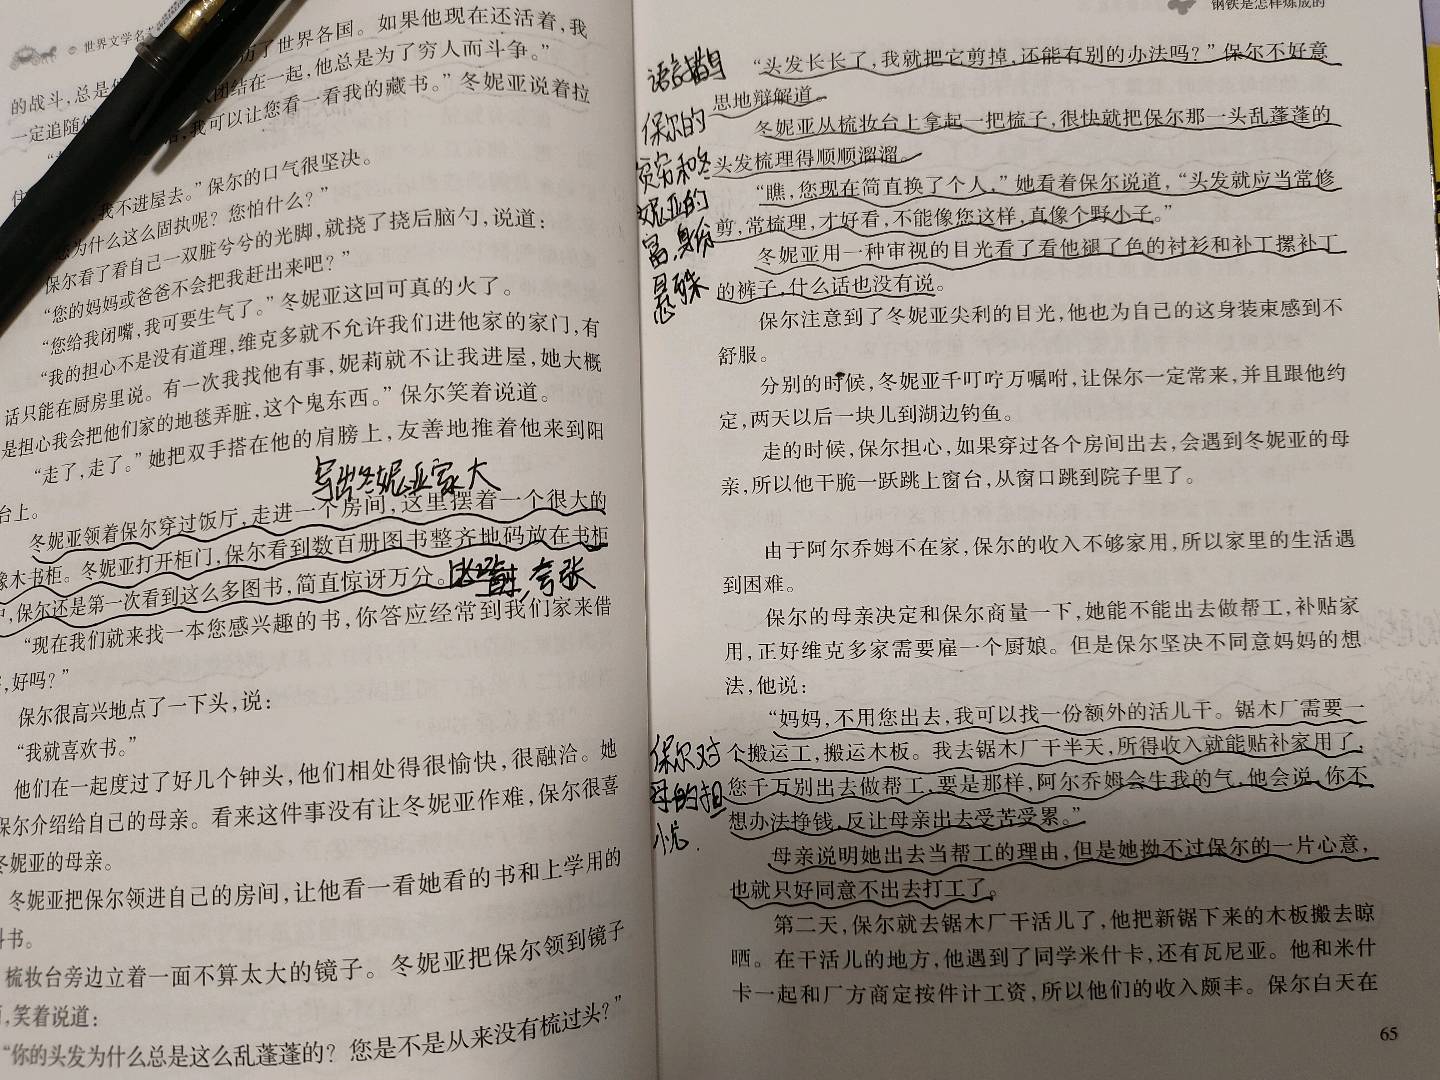 世界文学名
历了世界各国。如果他现在还活着，我
的战斗，总是
团结在一起，他总是为了穷人而斗争。”
一定追随
我可以让您看一看我的藏书。”冬妮亚说着拉
住
我不进屋去。”保尔的口气很坚决。
为什么这么固执呢？您怕什么？”
保尔看了看自己一双脏兮兮的光脚，就挠了挠后脑勺，说道：
“您的妈妈或爸爸不会把我赶出来吧？”
“您给我闭嘴，我可要生气了。”冬妮亚这回可真的火了。
“我的担心不是没有道理，维克多就不允许我们进他家的家门，有
话只能在厨房里说。有一次我找他有事，妮莉就不让我进屋，她大概
是担心我会把他们家的地毯弄脏，这个鬼东西。”保尔笑着说道。
“走了，走了。”她把双手搭在他的肩膀上，友善地推着他来到阳
台上。
写出冬妮亚家大
冬妮亚领着保尔穿过饭厅，走进一个房间，这里摆着一个很大的
橡木书柜。冬妮亚打开柜门，保尔看到数百册图书整齐地码放在书柜
中，保尔还是第一次看到这么多图书，简直惊讶万分。
夸张
“现在我们就来找一本您感兴趣的书，你答应经常到我们家来借
，好吗？”
保尔很高兴地点了一下头，说：
“我就喜欢书。”
他们在一起度过了好几个钟头，他们相处得很愉快，很融洽。她
保尔介绍给自己的母亲。看来这件事没有让冬妮亚作难，保尔很喜
冬妮亚的母亲。
冬妮亚把保尔领进自己的房间，让他看一看她看的书和上学用的
书。
梳妆台旁边立着一面不算太大的镜子。冬妮亚把保尔领到镜子
，笑着说道：
“你的头发为什么总是这么乱蓬蓬的？您是不是从来没有梳过头？”
钢铁是怎样炼成的
语言描写
“头发长长了，我就把它剪掉，还能有别的办法吗？”保尔不好意
思地辩解道。
保尔的
贫穷和冬
妮亚的
富，身份
悬殊
冬妮亚从梳妆台上拿起一把梳子，很快就把保尔那一头乱蓬蓬的
头发梳理得顺顺溜溜。
“瞧，您现在简直换了个人，”她看着保尔说道，“头发就应当常修
剪，常梳理，才好看，不能像您这样，真像个野小子。”
冬妮亚用一种审视的目光看了看他褪了色的衬衫和补丁摞补丁
的裤子，什么话也没有说。
保尔注意到了冬妮亚尖利的目光，他也为自己的这身装束感到不
舒服。
分别的时候，冬妮亚千叮咛万嘱咐，让保尔一定常来，并且跟他约
定，两天以后一块儿到湖边钓鱼。
走的时候，保尔担心，如果穿过各个房间出去，会遇到冬妮亚的母
亲，所以他干脆一跃跳上窗台，从窗口跳到院子里了。
由于阿尔乔姆不在家，保尔的收入不够家用，所以家里的生活遇
到困难。
保尔的母亲决定和保尔商量一下，她能不能出去做帮工，补贴家
用，正好维克多家需要雇一个厨娘。但是保尔坚决不同意妈妈的想
法，他说：
“妈妈，不用您出去，我可以找一份额外的活儿干。锯木厂需要一
个搬运工，搬运木板。我去锯木厂干半天，所得收入就能贴补家用了，
您千万别出去做帮工，要是那样，阿尔乔姆会生我的气，他会说，你不
想办法挣钱，反让母亲出去受苦受累。”
保尔对
母的担
忧.
母亲说明她出去当帮工的理由，但是她拗不过保尔的一片心意，
也就只好同意不出去打工了。
第二天，保尔就去锯木厂干活儿了，他把新锯下来的木板搬去晾
晒。在干活儿的地方，他遇到了同学米什卡，还有瓦尼亚。他和米什
卡一起和厂方商定按件计工资，所以他们的收入颇丰。保尔白天在
65